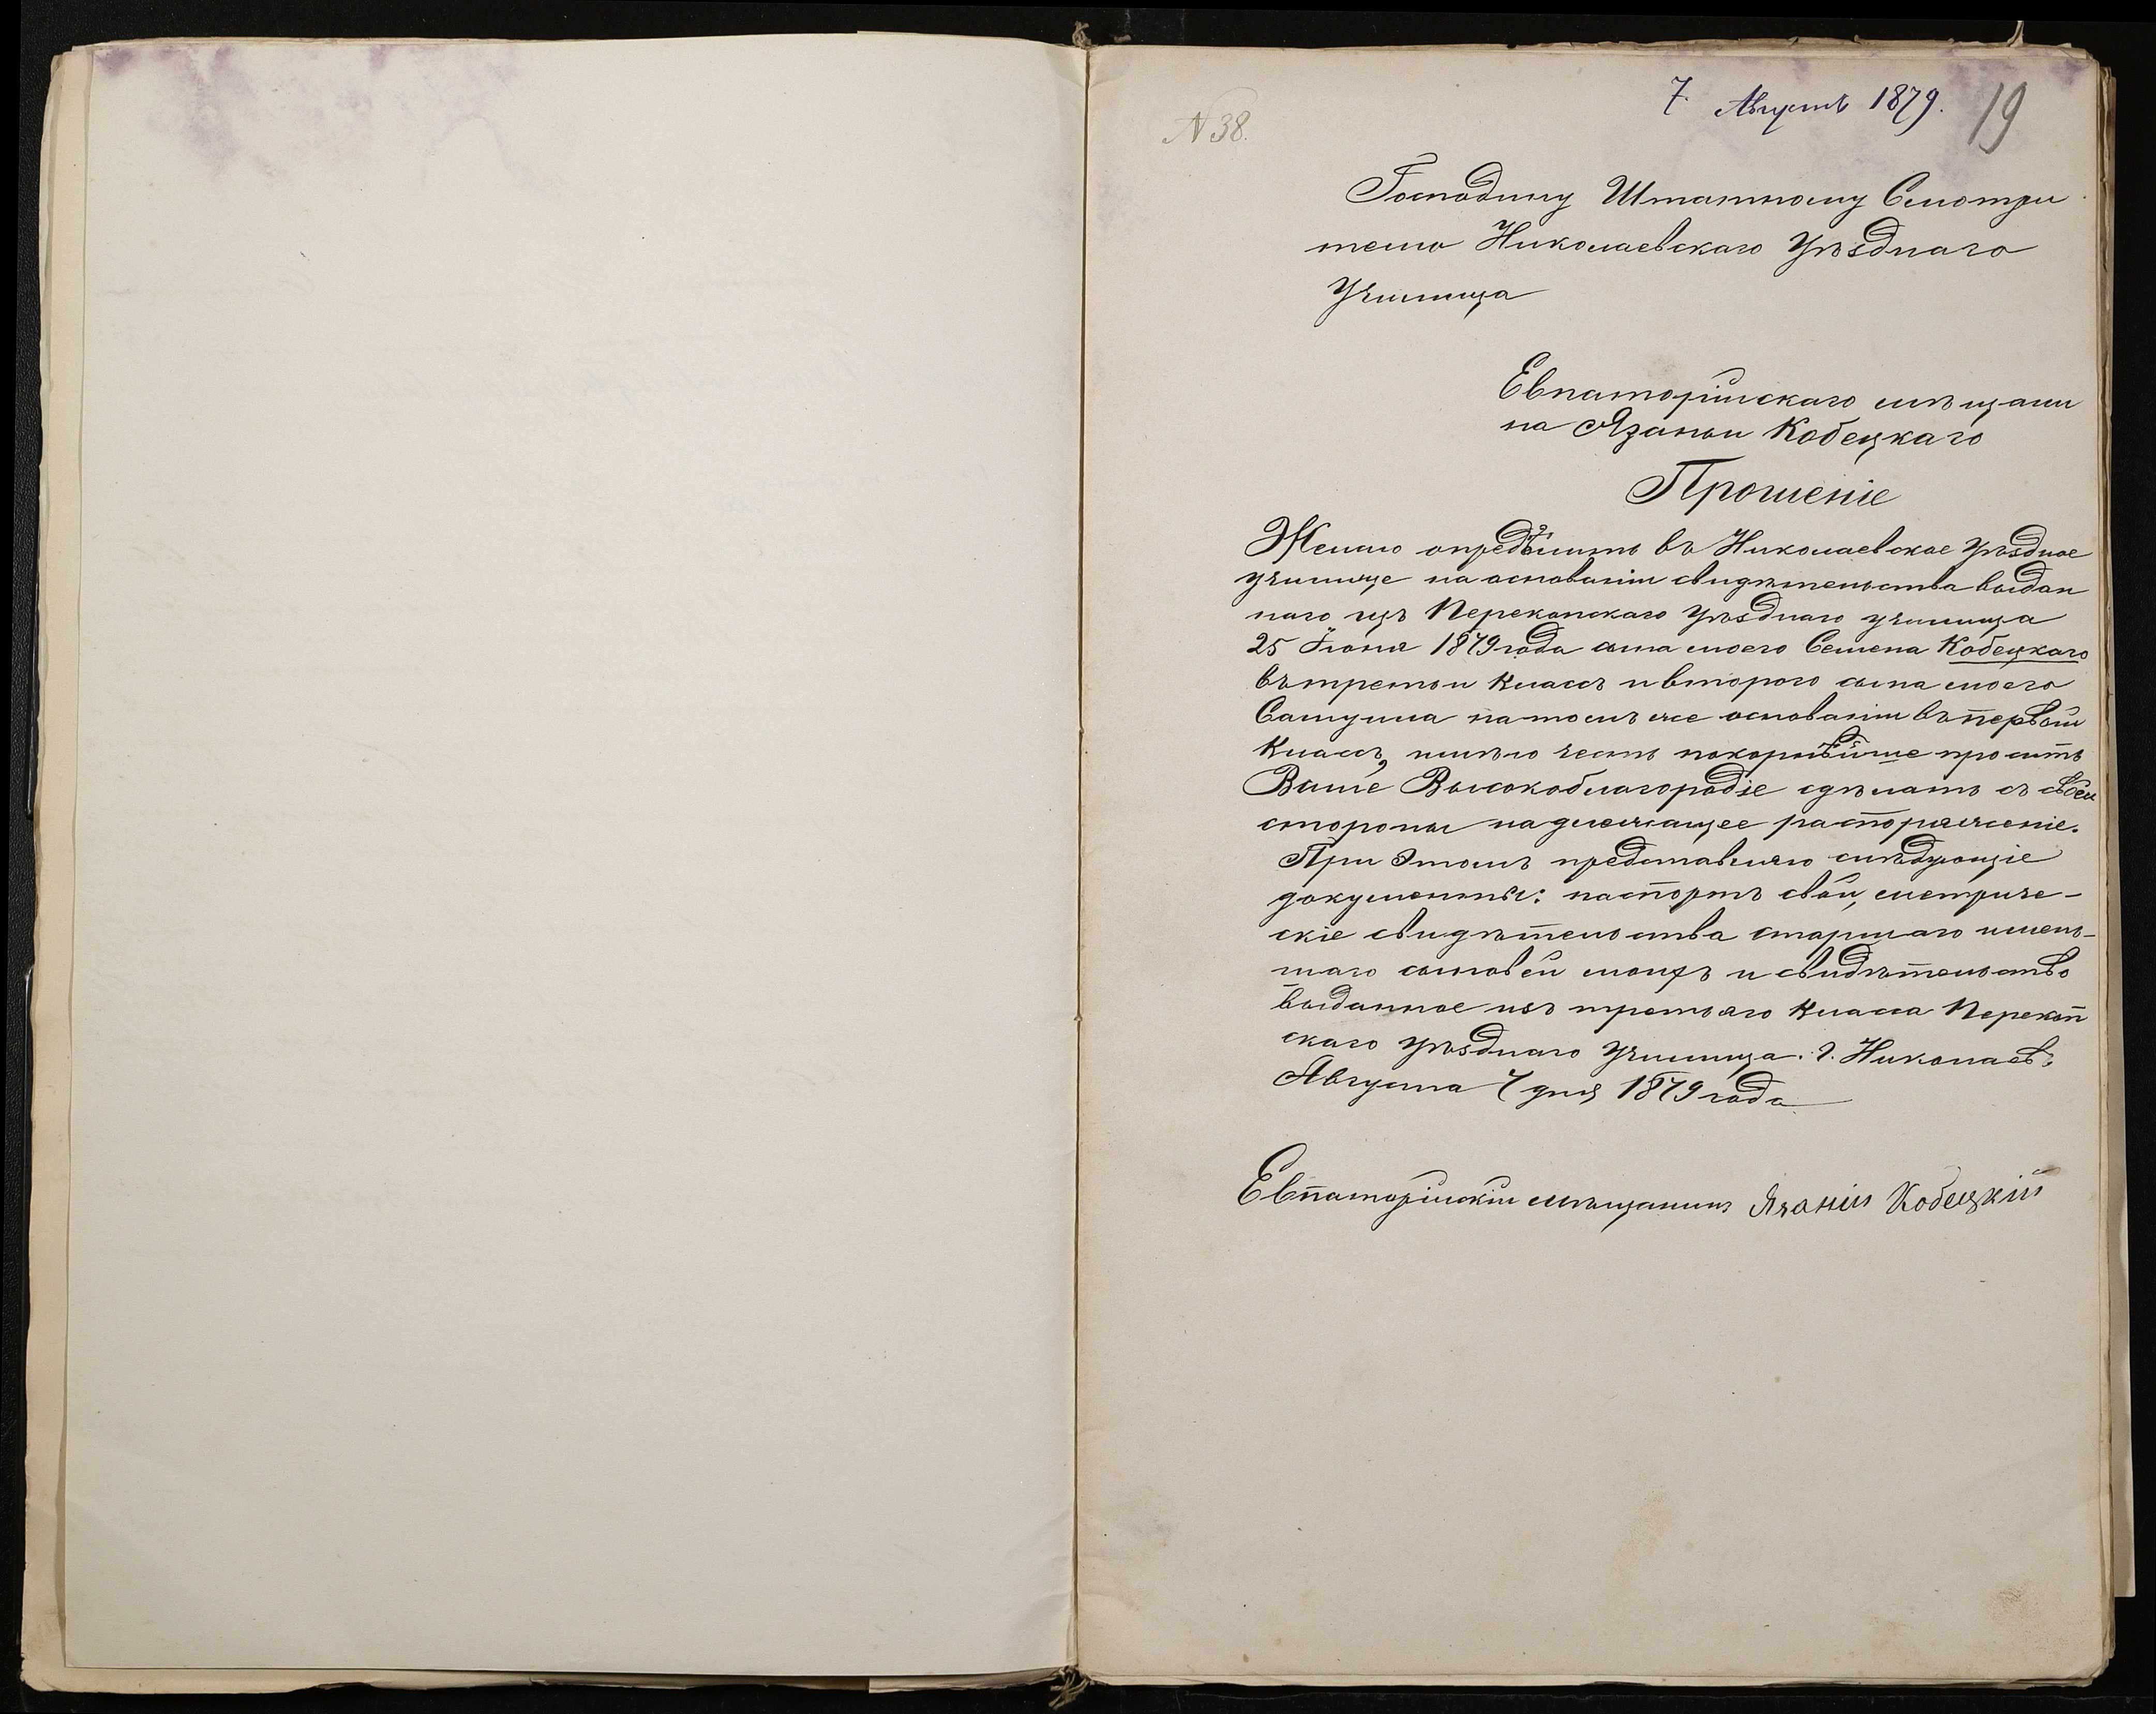 7. Августъ 1879.
19
N 38.
Господину Штатному Смотри
телю Николаевскаго Уѣзднаго
Училища
Евпаторійскаго мѣщани
на Язаньи Кобецкаго
Прошеніе
Желаю опредѣлить въ Николаевское Уѣздное
училище на основаніи свидѣтельства выдан
наго изъ Перекопскаго Уѣзднаго училища
25 Іюня 1879 года сына моего Семена Кобецкаго
въ третьи классъ и второго сына моего
Самуила на томъ же основаніи въ первый
классъ, имѣю честь покорнѣйше просить
Ваше Высокоблагородіе сдѣлать съ своей
стороны надлежащее распоряженіе.
При этомъ представляю слѣдующіе
документы: паспортъ свой, метриче-
скіе свидѣтельства старшаго и мень-
шаго сыновей моихъ и свидѣтельство
выданное изъ третьяго класса Перекоп
скаго уѣзднаго Училища. г. Николаевъ
Августа 7 дня 1879 года
Евпаторійскій мѣщанинъ Азанія Кобецкій